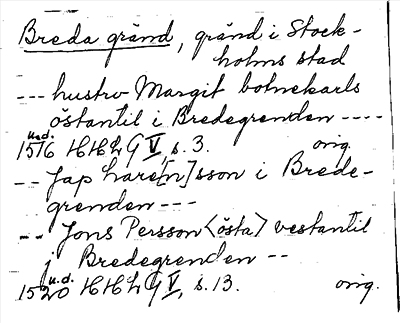 Breda gränd, gränd i Stock-
holms stad
--- hustru Margit botnekarls
östantil i Bredegrenden ----
u.d.
1516 HHLG V, s. 3. orig.
-- Jap Lare[n]sson i Brede-
grenden ---
-- Jons Persson <östa> vestantil
j Bredegrenden --
u.d.
1520 HHLG V, s. 13. orig.